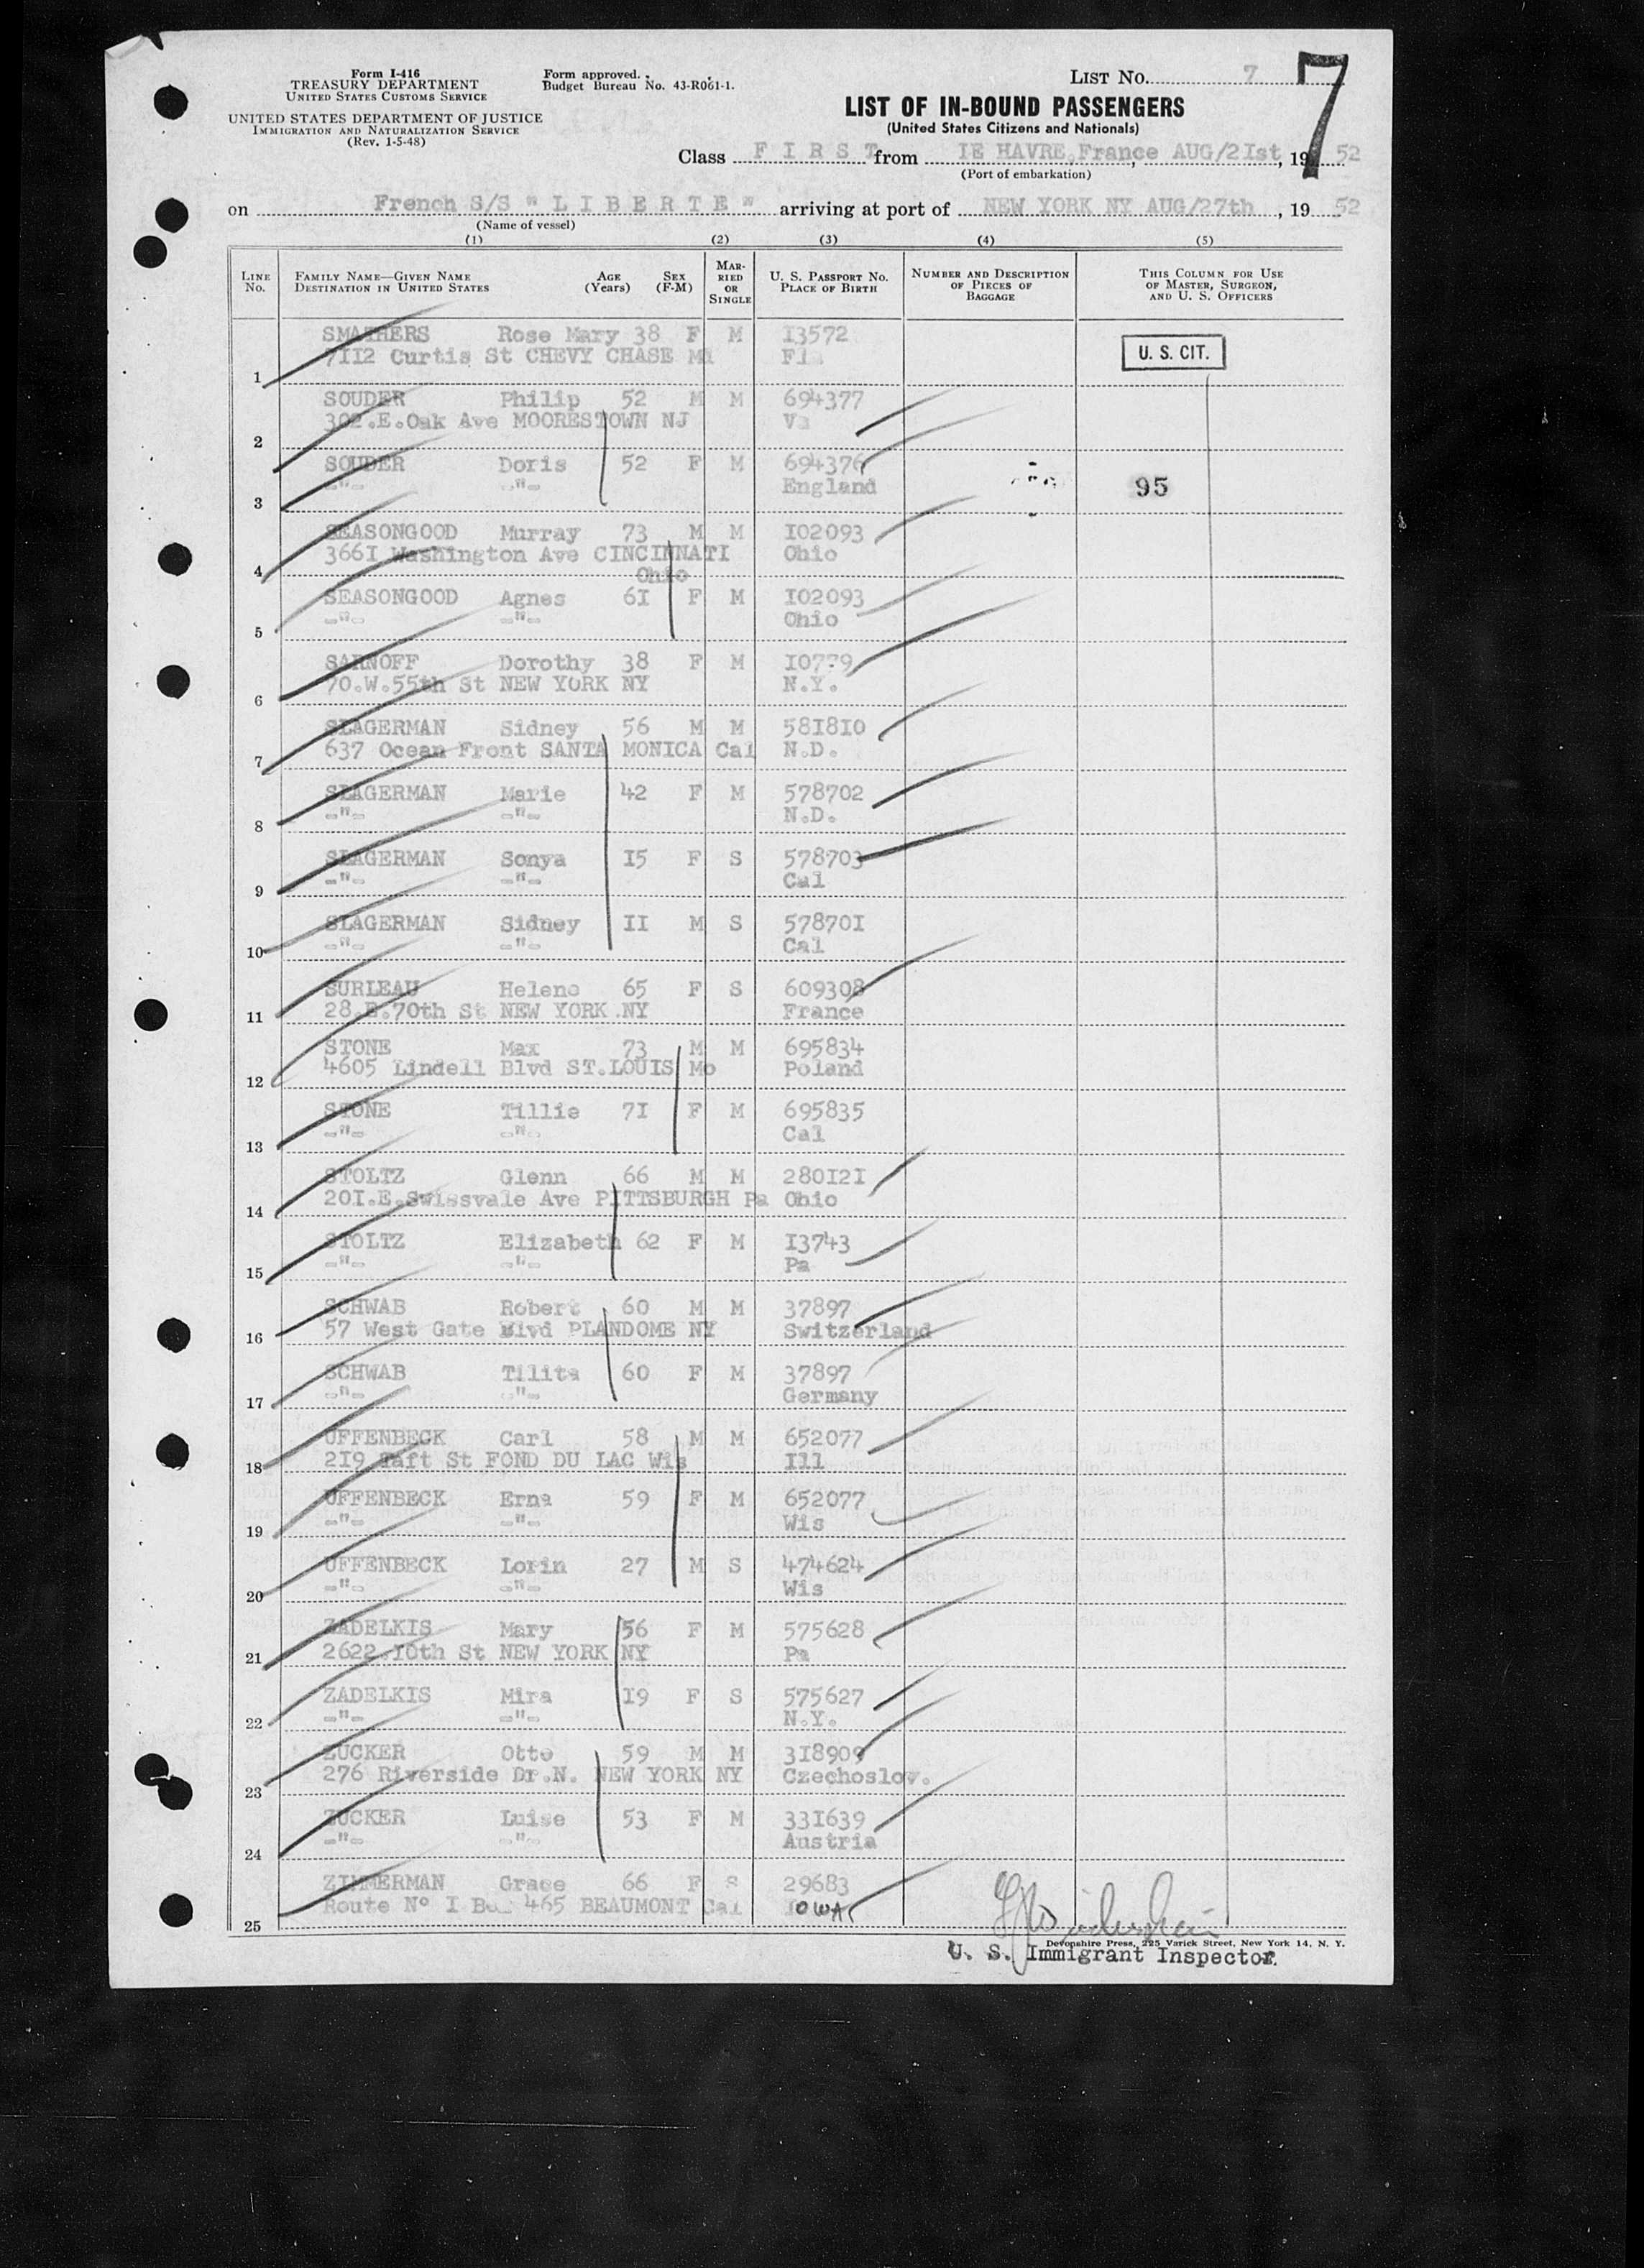 Form I-416
TREASURY DEPARTMENT
UNITED STATES CUSTOMS SERVICE
UNITED STATES DEPARTMENT OF JUSTICE
IMMIGRATION AND NATURALIZATION SERVICE
(Rev. 1-5-48)
Form approved.
Budget Bureau No. 43-R061-1.
LIST NO. 7
7
LIST OF IN-BOUND PASSENGERS
(United States Citizens and Nationals)
Class F I R S T from IE HAVRE, France AUG/2Ist, 19 52
(Port of embarkation)
on French S/S " L I B E R T E " arriving at port of NEW YORK NY AUG/27th, 19 52
(Name of vessel)
(1) (2) (3) (4) (5)
LINE NO. FAMILY NAME—GIVEN NAME DESTINATION IN UNITED STATES AGE (Years) SEX (F-M) MARRIED OR SINGLE U. S. PASSPORT NO. PLACE OF BIRTH NUMBER AND DESCRIPTION OF PIECES OF BAGGAGE THIS COLUMN FOR USE OF MASTER, SURGEON, AND U. S. OFFICERS
SMATHERS Rose Mary 38 F M I3572
7II2 Curtis St CHEVY CHASE Md Fla
1
U. S. CIT.
SOUDER Philip 52 M M 694377
302.E.Oak Ave MOORESTOWN NJ Va
2
SOUDER Doris 52 F M 694376
-"- -"- England
3
95
SEASONGOOD Murray 73 M M I02093
366I Washington Ave CINCINNATI Ohio
4 Ohio
SEASONGOOD Agnes 6I F M I02093
-"- -"- Ohio
5
SARNOFF Dorothy 38 F M
70.W.55th St NEW YORK NY N.Y.
6
SLAGERMAN Sidney 56 M M 58I8I0
637 Ocean Front SANTA MONICA Cal N.D.
7
SLAGERMAN Marie 42 F M 578702
-"- -"- N.D.
8
SLAGERMAN Sonya I5 F S 578703
-"- -"- Cal
9
SLAGERMAN Sidney II M S 57870I
-"- -"- Cal
10
SURLEAU Helene 65 F S 609308
28.E.70th St NEW YORK NY France
11
STONE Max 73 M M 695834
4605 Lindell Blvd ST.LOUIS Mo Poland
12
STONE Tillie 7I F M 695835
-"- -"- Cal
13
STOLTZ Glenn 66 M M 280I2I
20I.E.Swissvale Ave PITTSBURGH Pa Ohio
14
STOLTZ Elizabeth 62 F M I3743
-"- -"- Pa
15
SCHWAB Robert 60 M M 37897
57 West Gate Blvd PLANDOME NY Switzerland
16
SCHWAB Tilita 60 F M 37897
-"- -"- Germany
17
UFFENBECK Carl 58 M M 652077
2I9 Taft St FOND DU LAC Wis Ill
18
UFFENBECK Erna 59 F M 652077
-"- -"- Wis
19
UFFENBECK Lorin 27 M S 474624
-"- -"- Wis
20
ZADELKIS Mary 56 F M 575628
2622 I0th St NEW YORK NY Pa
21
ZADELKIS Mira I9 F S 575627
-"- -"- N.Y.
22
ZUCKER Otto 59 M M 3I8909
276 Riverside Dr.N. NEW YORK NY Czechoslov.
23
ZUCKER Luise 53 F M 33I639
-"- -"- Austria
24
ZIMMERMAN Grace 66 F S 29683
Route Nº I Box 465 BEAUMONT Cal IOWA
25
Devonshire Press, 225 Varick Street, New York 14, N. Y.
U. S. Immigrant Inspector.